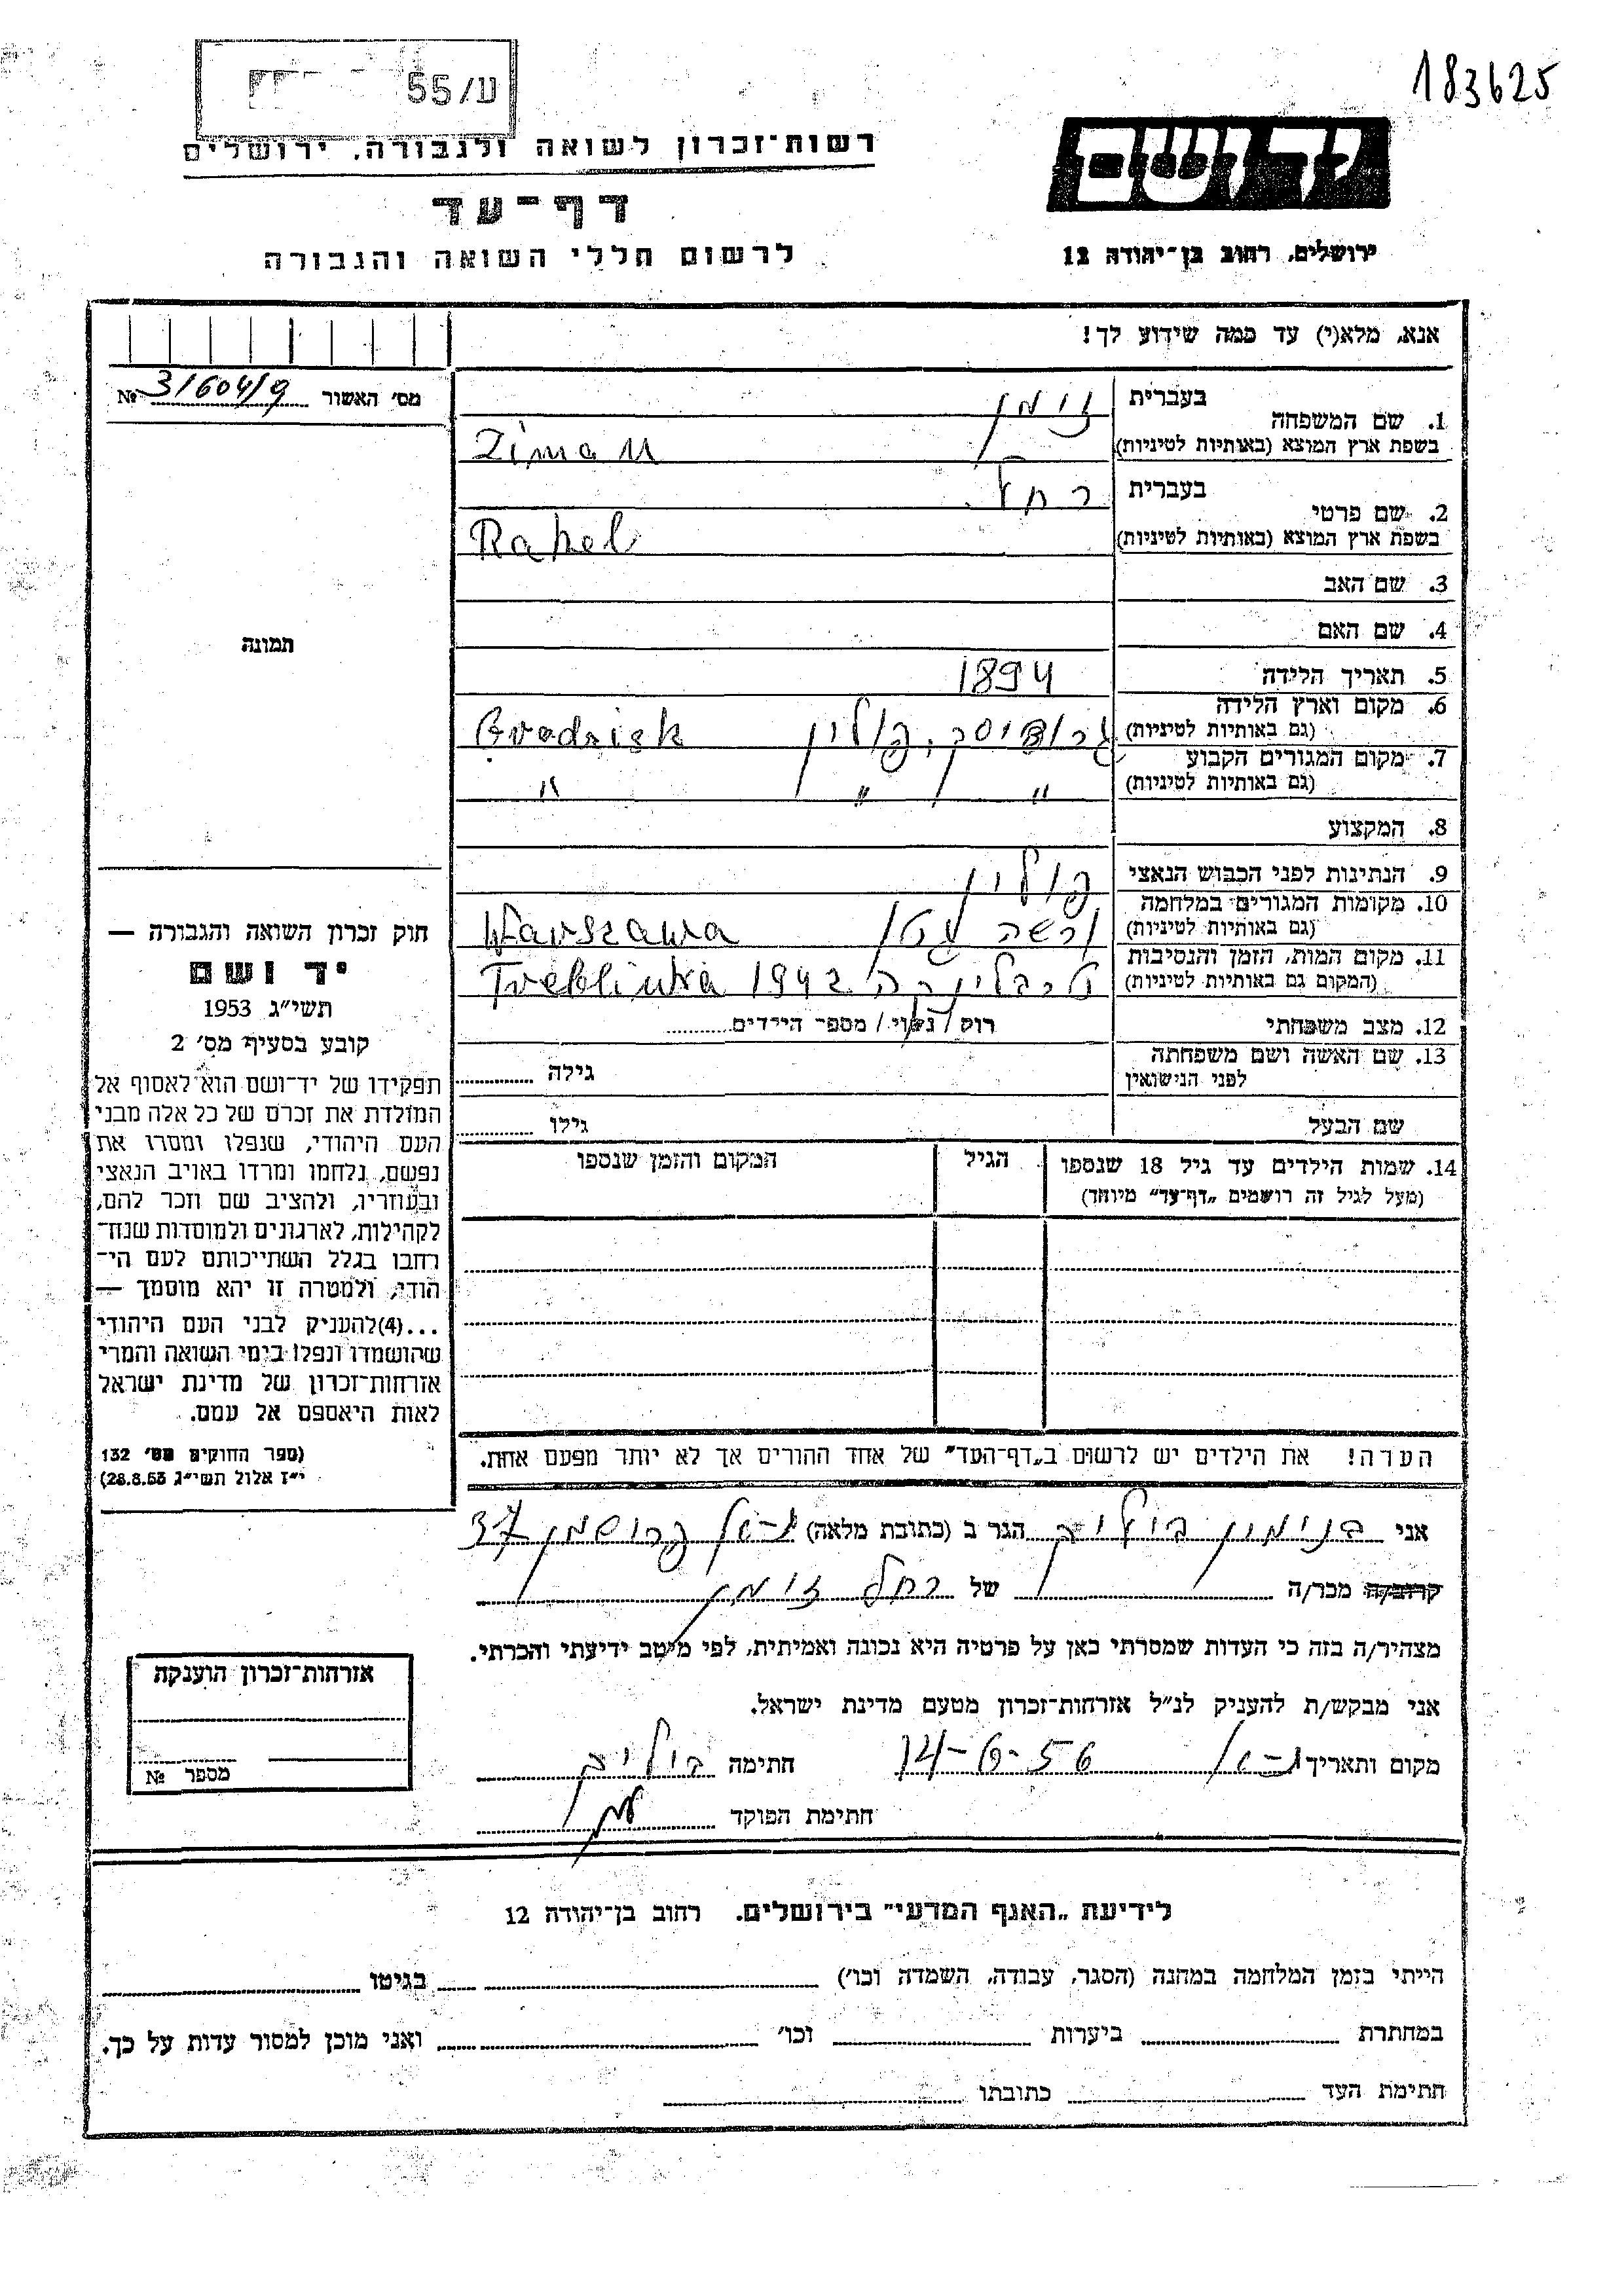 183625
ע/55
יד ושם
רשות־זכרון לשואה ולגבורה, ירושלים
דף־עד
ירושלים, רחוב בן־יהודה 12
לרשום חללי השואה והגבורה
אנא, מלא(י) עד כמה שידוע לך!
מס׳ האשור 31604/9 №
1. שם המשפחה
בעברית זימן
בשפת ארץ המוצא (באותיות לטיניות) Ziman
2. שם פרטי
בעברית רחל
בשפת ארץ המוצא (באותיות לטיניות) Rahel
3. שם האב
4. שם האם
תמונה
5. תאריך הלידה 1894
6. מקום וארץ הלידה
(גם באותיות לטיניות) פולין Grodzisk
7. מקום המגורים הקבוע
(גם באותיות לטיניות) " " "
8. המקצוע
9. הנתינות לפני הכבוש הנאצי פולין
10. מקומות המגורים במלחמה
(גם באותיות לטיניות) ורשה גטו Warszawa
11. מקום המות, הזמן והנסיבות
(המקום גם באותיות לטיניות) טרבלינקה 1942 Treblinka
12. מצב משפחתי רוק / נשוי / מספר הילדים
13. שם האשה ושם משפחתה
לפני הנישואין גילה
שם הבעל גילו
14. שמות הילדים עד גיל 18 שנספו הגיל המקום והזמן שנספו
(מעל לגיל זה רושמים „דף־עד” מיוחד)
חוק זכרון השואה והגבורה —
יד ושם
תשי״ג 1953
קובע בסעיף מס׳ 2
תפקידו של יד־ושם הוא לאסוף אל
המולדת את זכרם של כל אלה מבני
העם היהודי, שנפלו ומסרו את
נפשם, נלחמו ומרדו באויב הנאצי
ובעוזריו, ולהציב שם וזכר להם,
לקהילות, לארגונים ולמוסדות שנח־
רבו בגלל השתייכותם לעם הי־
הודי, ולמטרה זו יהא מוסמך —
...(4)להעניק לבני העם היהודי
שהושמדו ונפלו בימי השואה והמרי
אזרחות־זכרון של מדינת ישראל
לאות היאספם אל עמם.
(ספר החוקים מס׳ 132
י״ז אלול תשי״ג 28.8.53)
הערה! את הילדים יש לרשום ב„דף־העד” של אחד ההורים אך לא יותר מפעם אחת.
אני הגר ב (כתובת מלאה) 37
קרוב/ה מכר/ה של רחל זימן
מצהיר/ה בזה כי העדות שמסרתי כאן על פרטיה היא נכונה ואמיתית, לפי מיטב ידיעתי והכרתי.
אני מבקש/ת להעניק לנ״ל אזרחות־זכרון מטעם מדינת ישראל.
מקום ותאריך 14-6-56 חתימה
חתימת הפוקד
אזרחות־זכרון הוענקה
מספר №
לידיעת „האגף המדעי” בירושלים. רחוב בן־יהודה 12
הייתי בזמן המלחמה במחנה (הסגר, עבודה, השמדה וכו׳) בגיטו
במחתרת ביערות וכו׳ ואני מוכן למסור עדות על כך.
חתימת העד כתובתו